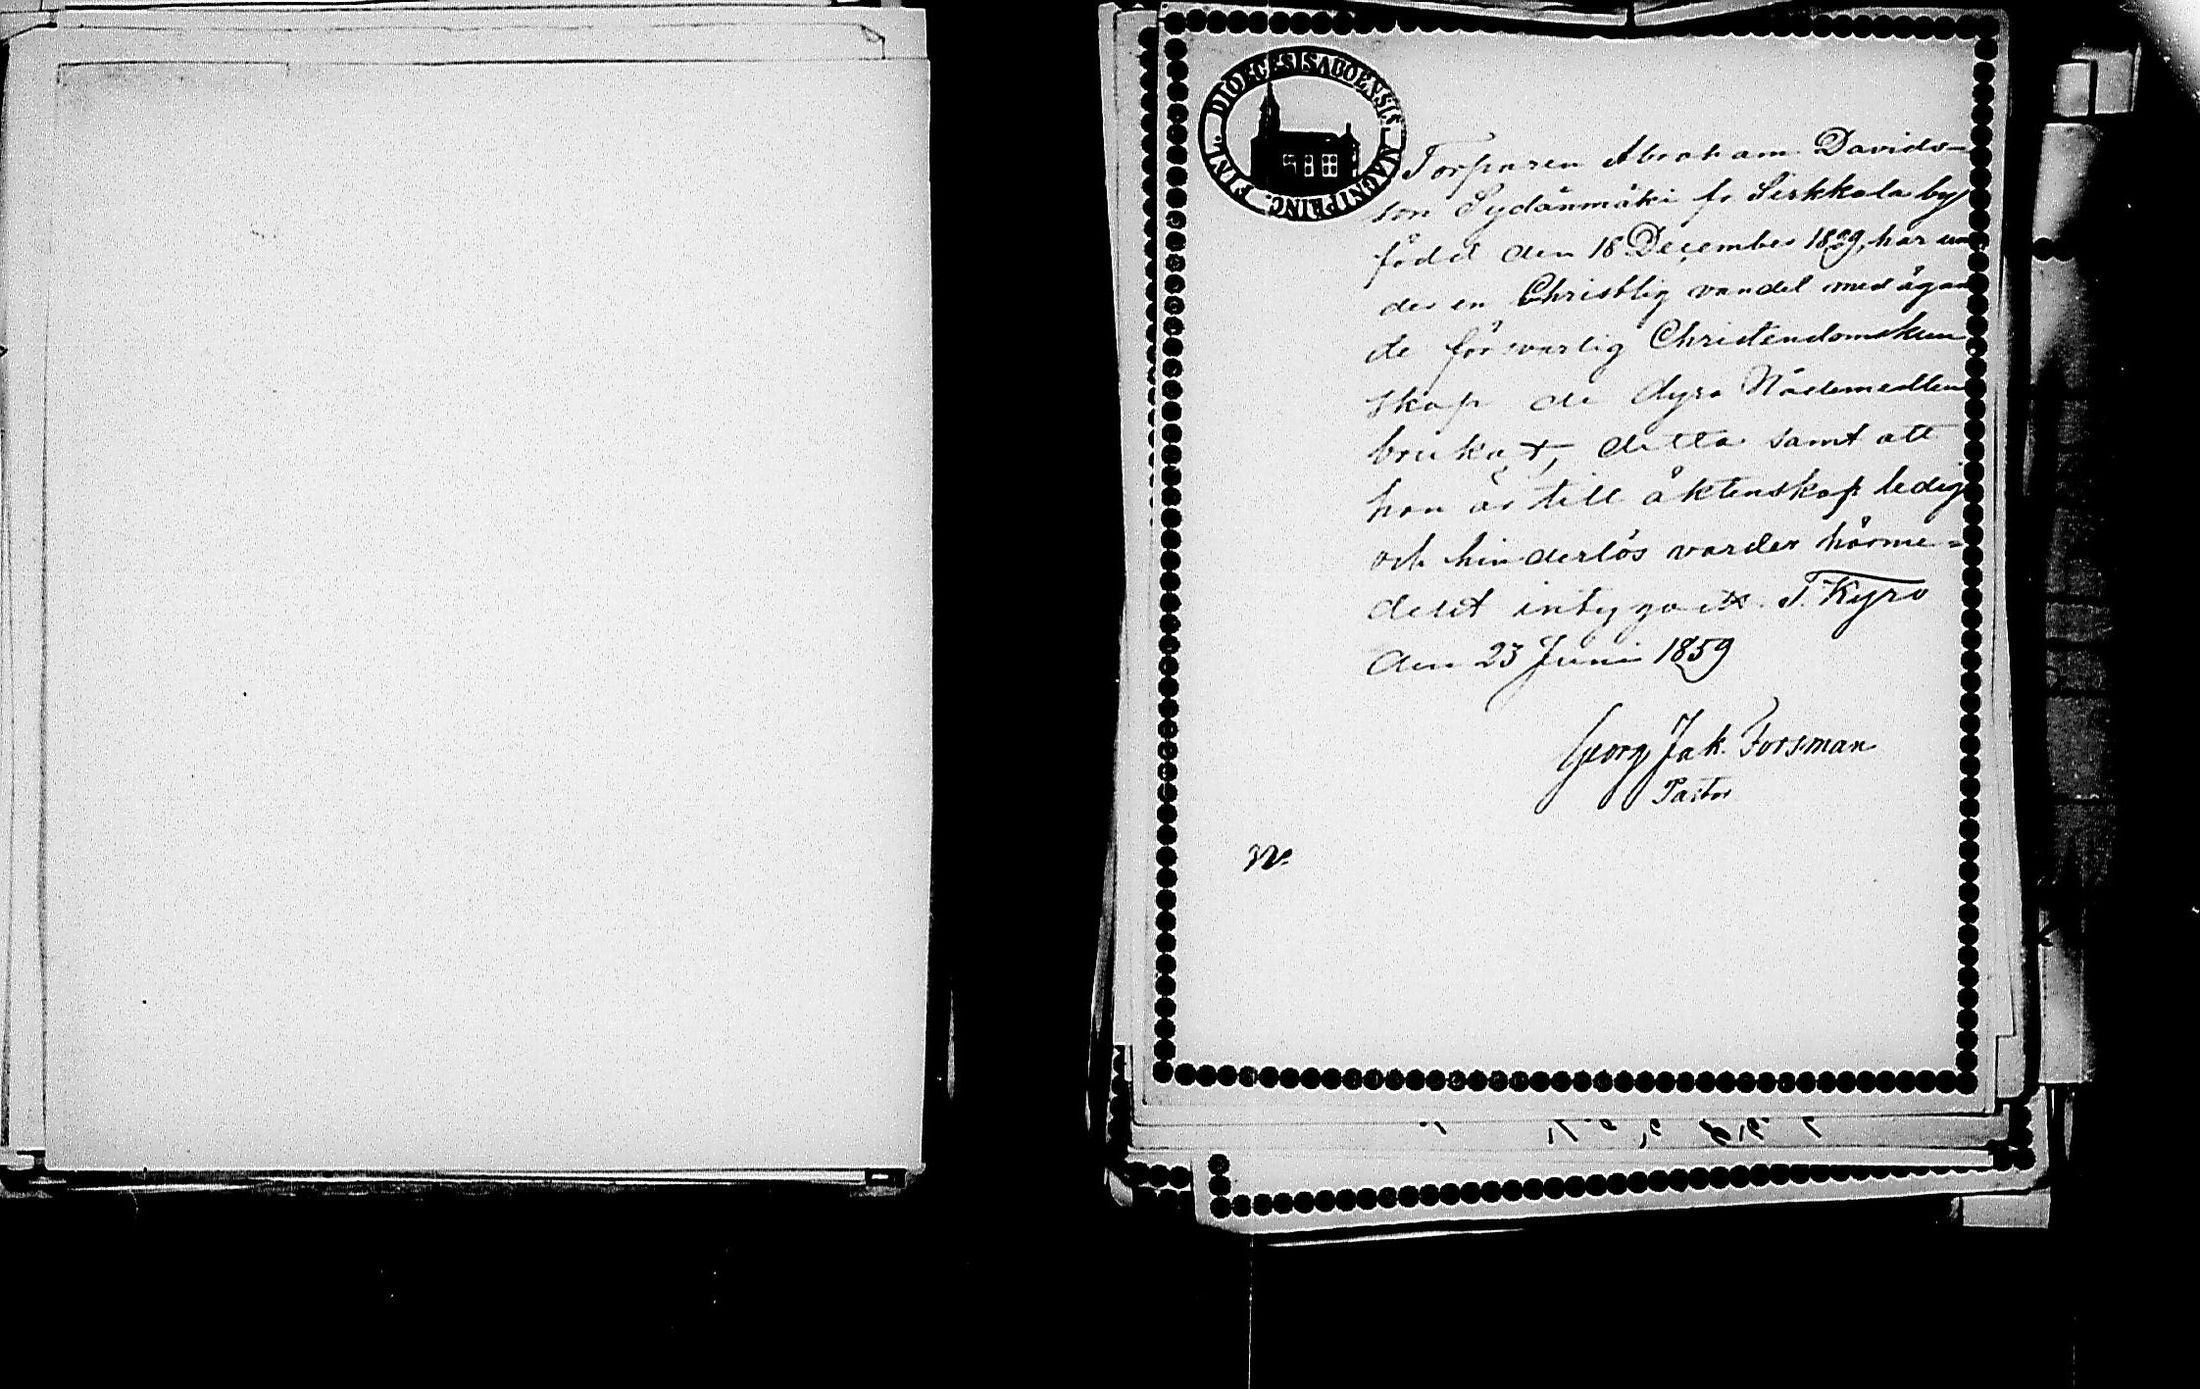 DIOECESIS ABOENSIS MAGNI PRINC. FINL.
Torparen Abraham Davids-
son Sydänmäki fr Serkkala by
född den 18 December 1829, har un
der en Christlig vandel med ägan
de försvarlig Christendomskun
skap de dyra Nådemedlen
brukat, detta samt att
han är till äktenskap ledig
och hinderlös varder härme=
delst intygadt. T. Kyro
den 23 Juni 1859
Georg Jak. Forsman
Pastor